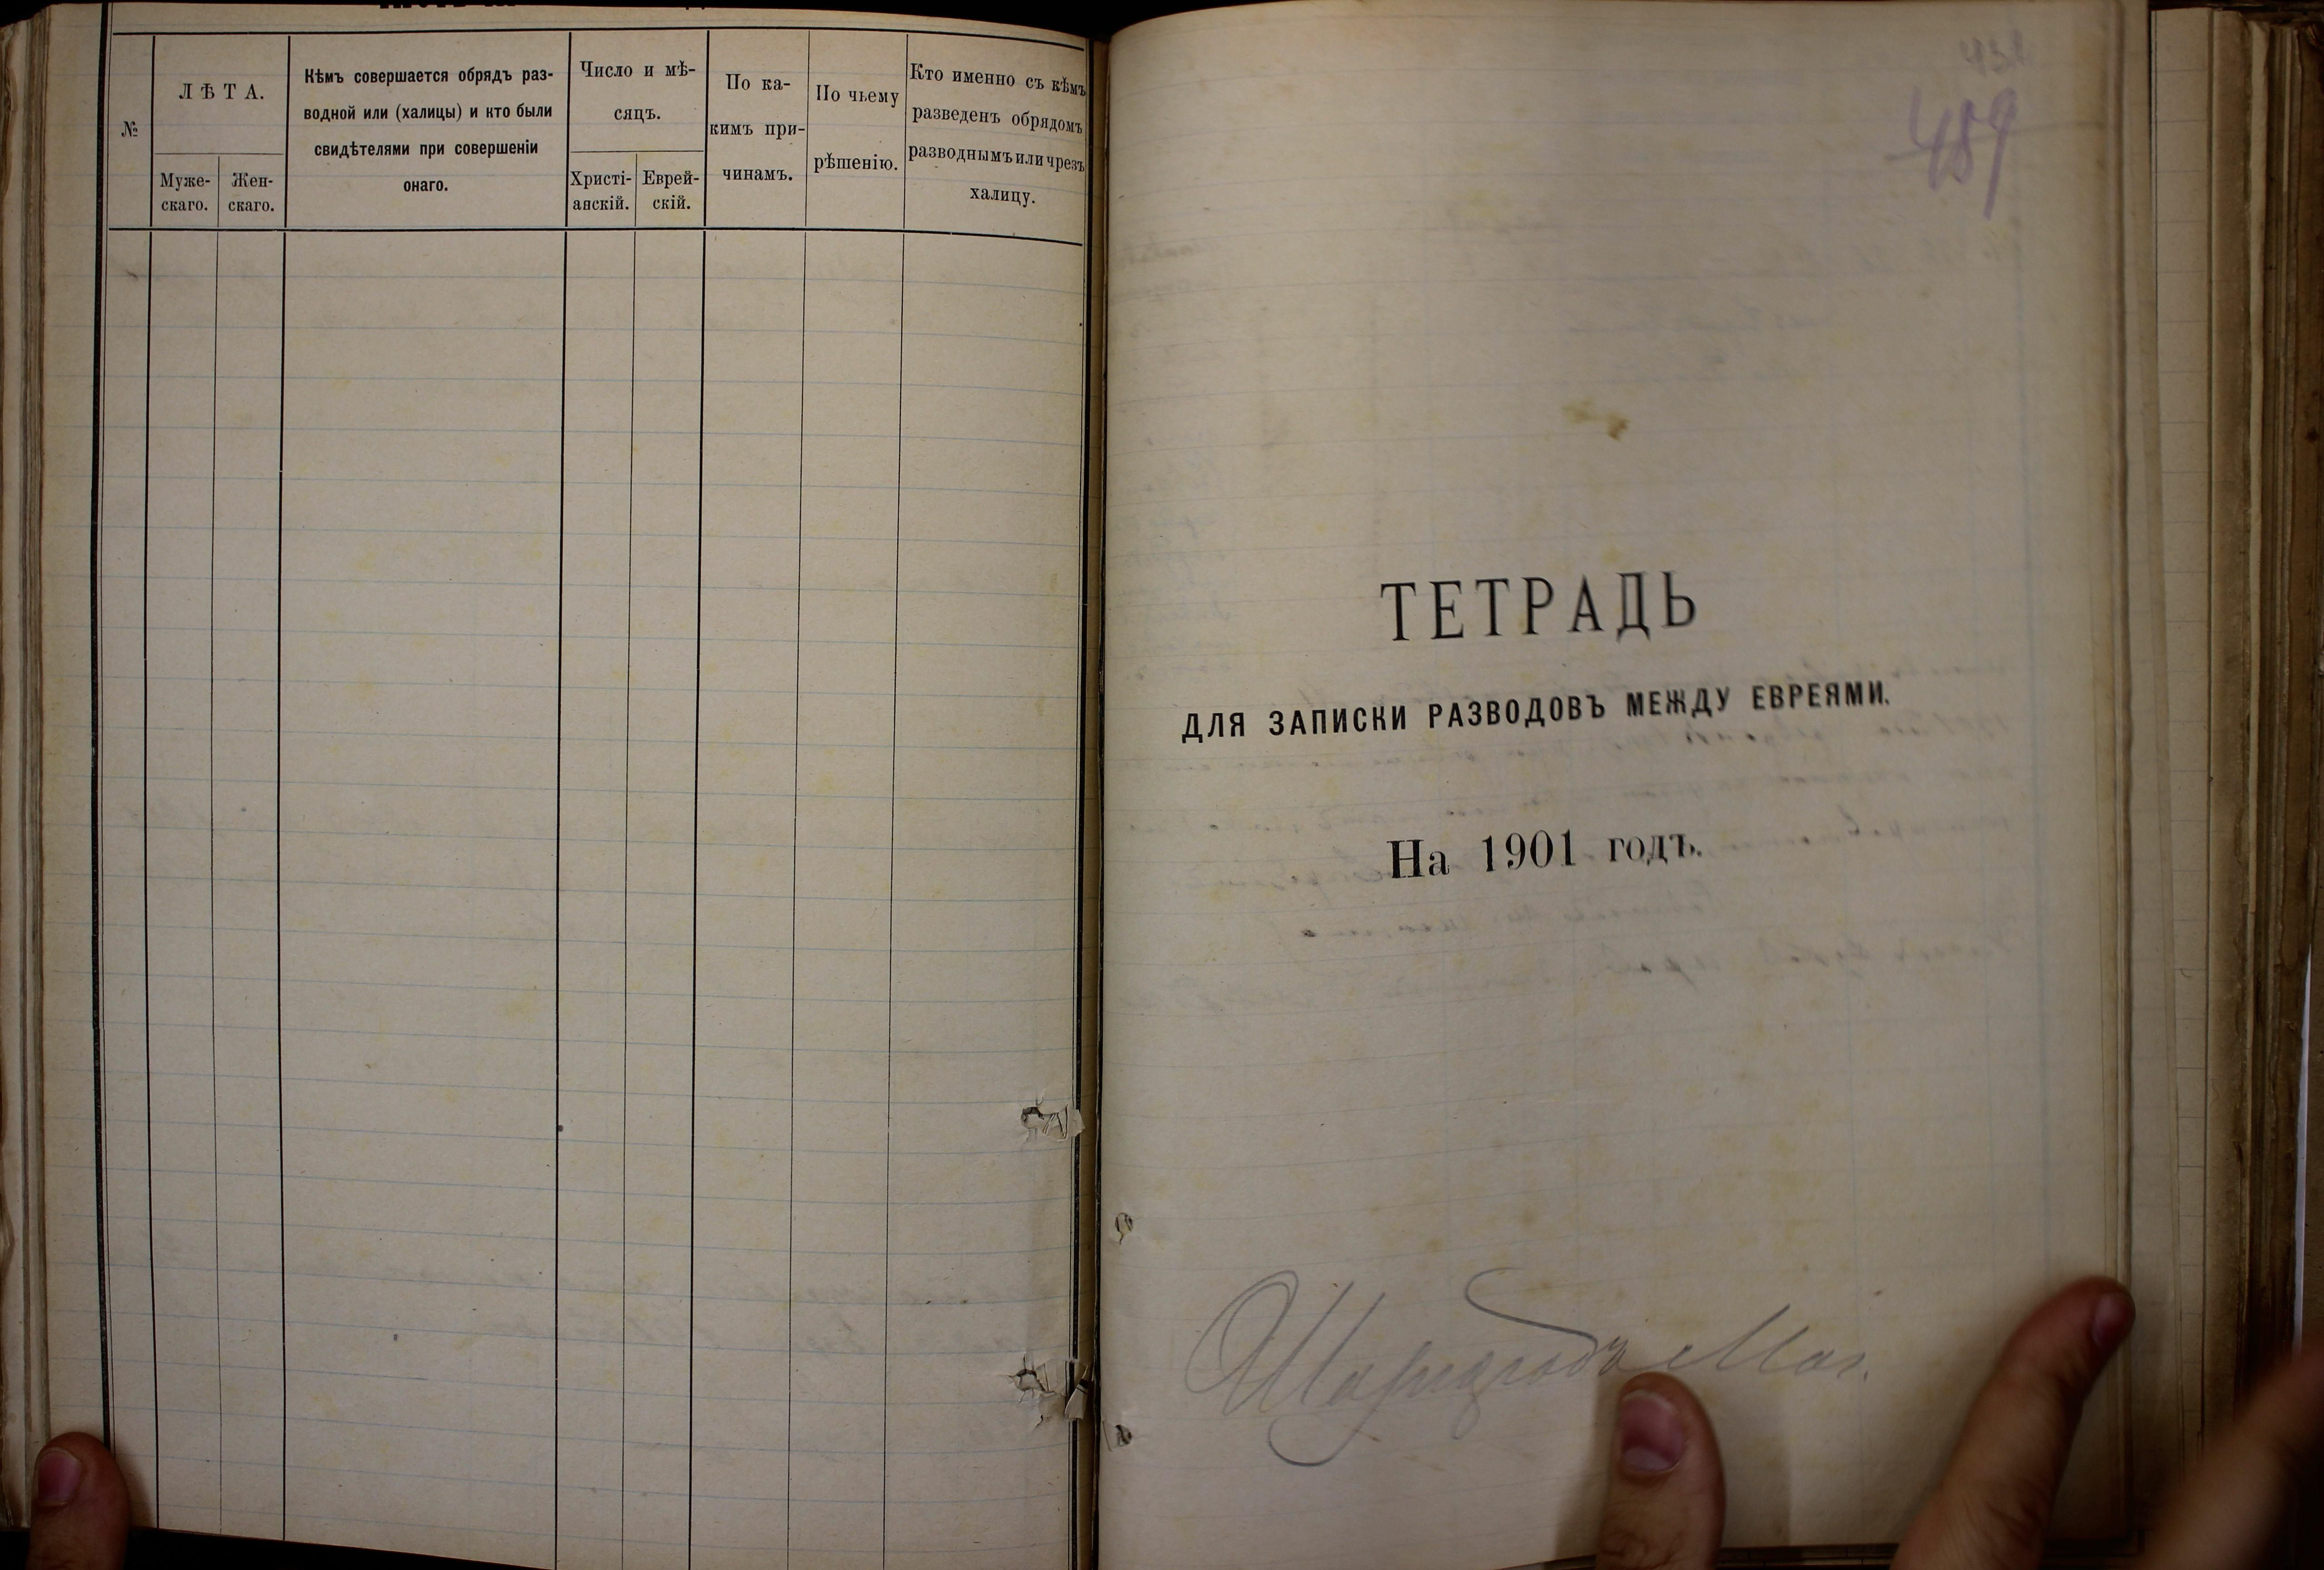 №
ЛѢТА.
Муже-
скаго.
Жен-
скаго.
Кѣмъ совершается обрядъ раз-
водной или (халицы) и кто были
свидѣтелями при совершеніи
онаго.
Число и мѣ-
сяцъ.
Христі-
анскій.
Еврей-
скій.
По ка-
кимъ при-
чинамъ.
По чьему
рѣшенію.
Кто именно съ кѣмъ
разведенъ обрядомъ
разводнымъ или чрезъ
халицу.
489
ТЕТРАДЬ
ДЛЯ ЗАПИСКИ РАЗВОДОВЪ МЕЖДУ ЕВРЕЯМИ.
На 1901 годъ.
Шаргородъ Мог.